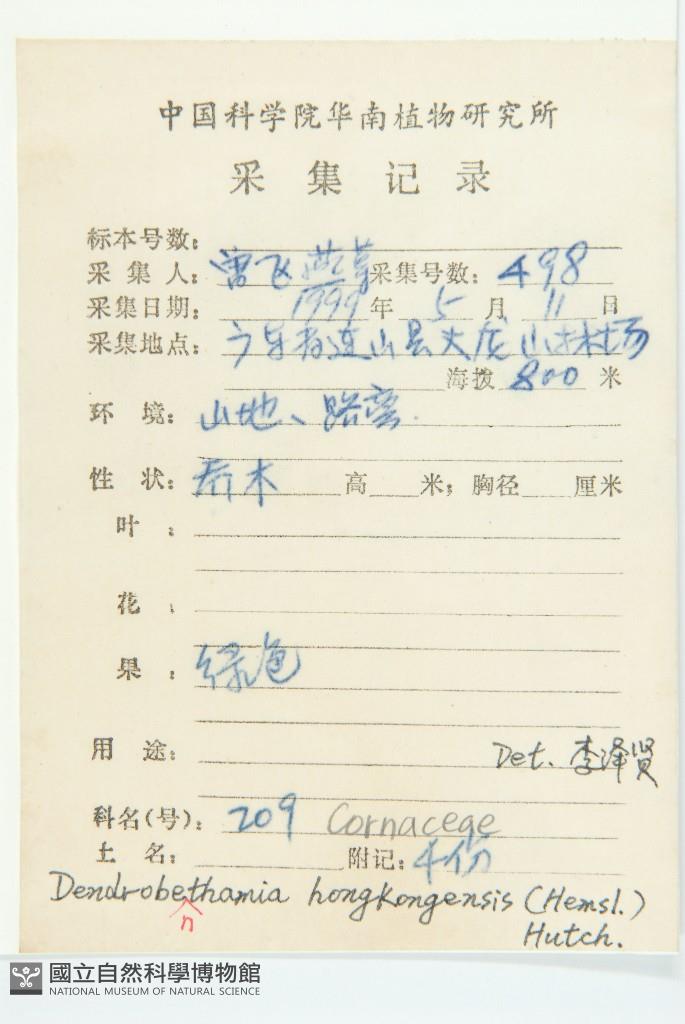 中国科学院华南植物研究所
采集记录
标本号数:
采集人: 曾飞燕等 采集号数: 498
采集日期: 1999 年 5 月 11 日
采集地点: 广东省连山县大龙山林场
海拨 800 米
环境: 山地、路旁.
性状: 乔木 高 米; 胸径 厘米
叶:
花:
果: 绿色
用途:
Det. 李泽贤
科名(号): 209 Cornaceae
土名: 附记: 4份
Dendrobethamia hongkongensis (Hemsl.)
n
Hutch.
國立自然科學博物館
NATIONAL MUSEUM OF NATURAL SCIENCE